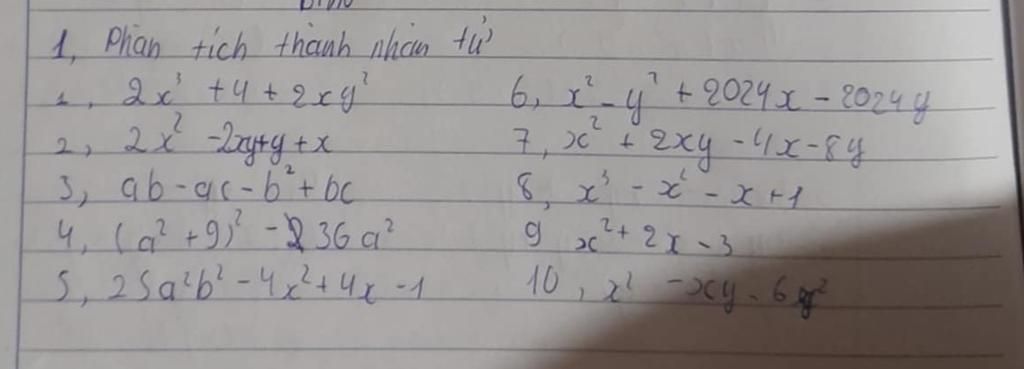 1, Phân tích thành nhân tử
1, 2x³ + 4 + 2xy²
2, 2x² - 2xy+y + x
3, ab - ac - b² + bc
4, (a² + 9)² - 36a²
5, 25a²b² - 4x² + 4x - 1
6, x² - y² + 2024x - 2024y
7, x² + 2xy - 4x - 8y
8, x³ - x² - x + 1
9 x² + 2x - 3
10, x² - xy - 6y²